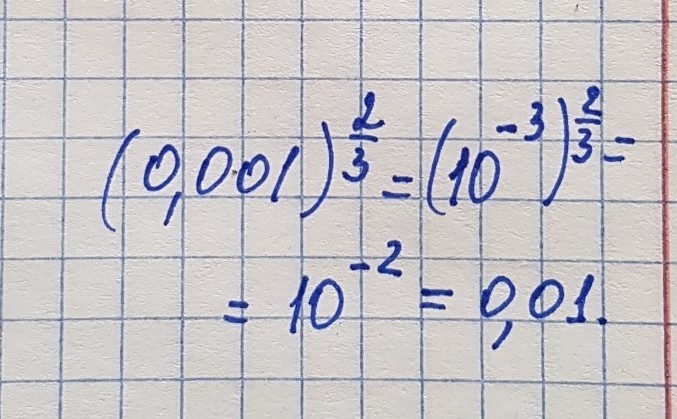 (0,001)^{2/3} = (10^{-3})^{2/3} =
= 10^{-2} = 0,01.